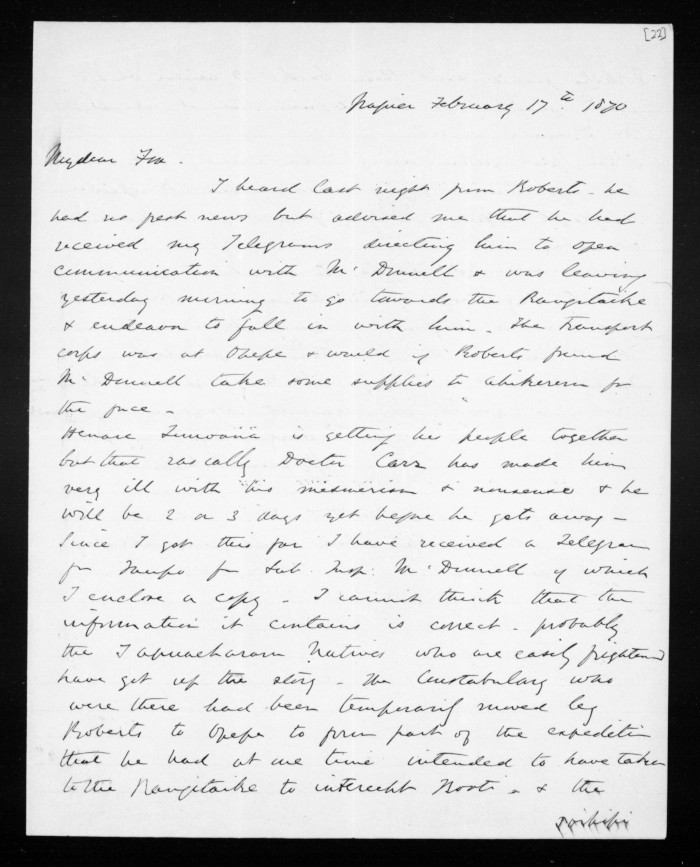 [22]
Napier February 17th 1870
My dear Fox.
I heard last night from Roberts - he
had no post news but advised me that he had
received my Telegrams directing him to open
communication with McDonnell & was leaving
yesterday morning to go towards the Rangitaike
& endeavor to fall in with him - The Transport
corps was at Opepe & would if Roberts found
McDonnell take some supplies to Ahikereru for
the force -
Henare Tomoana is getting his people together
but that rascally Doctor Carr has made him
very ill with his mesmerism & nonsense & he
will be 2 or 3 days yet before he gets away -
Since I got this far I have received a Telegram
fm Taupo fm Sub Insp. McDonnell of which
I enclose a copy - I cannot think that the
information it contains is correct - probably
the Natives who are easily frightened
have got up the story - The Constabulary who
were there had been temporarily moved by
Roberts to Opepe to form part of the expedition
that he had at one time intended to have taken
to the Rangitaike to intercept Kooti - & the